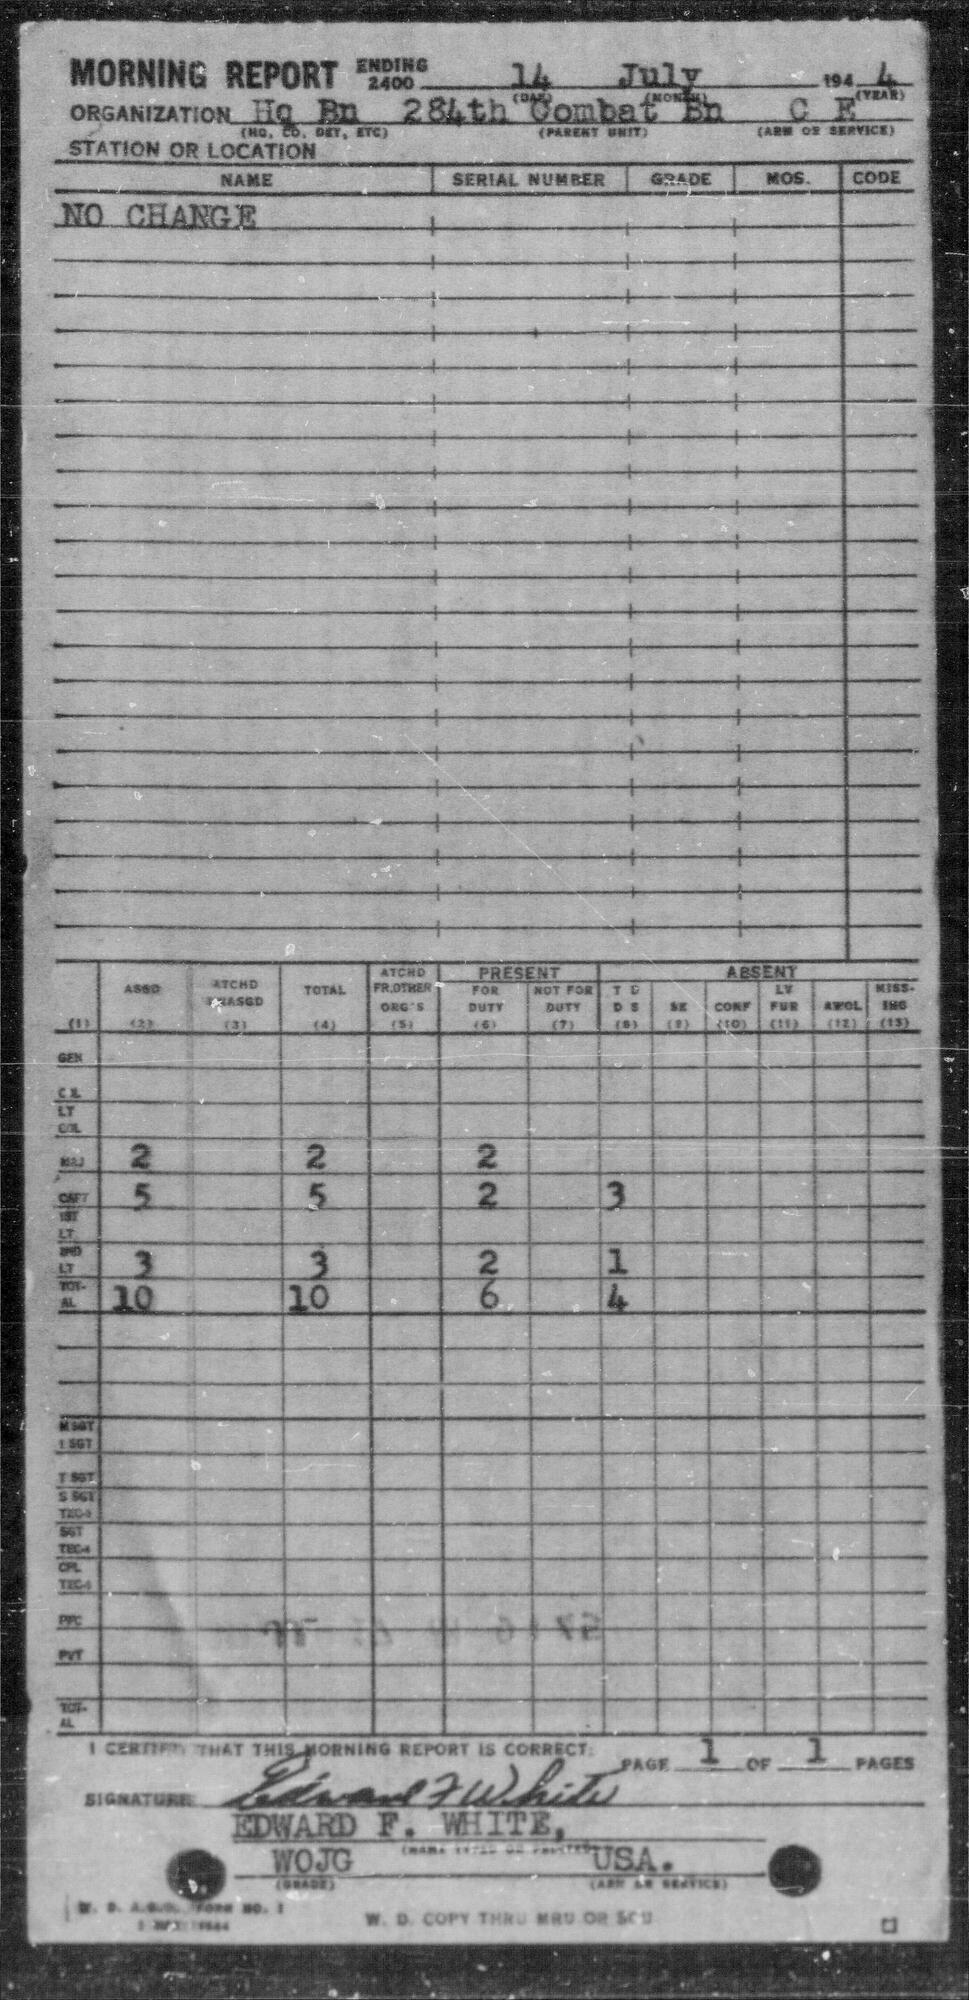 MORNING REPORT ENDING 2400 14 July 194 4
(DAY) (MONTH) (YEAR)
ORGANIZATION Hq Bn 284th Combat Bn C E
(HQ, CO, DET, ETC) (PARENT UNIT) (ARM OR SERVICE)
STATION OR LOCATION
NAME SERIAL NUMBER GRADE MOS. CODE
NO CHANGE
ATCHD PRESENT ABSENT
ASGD ATCHD UNASGD TOTAL FR.OTHER ORG'S FOR DUTY NOT FOR DUTY T D D S SK CONF LV FUR AWOL MISS-ING
(1) (2) (3) (4) (5) (6) (7) (8) (9) (10) (11) (12) (13)
GEN
COL
LT COL
MAJ 2 2 2
CAPT 5 5 2 3
1ST LT
2ND LT 3 3 2 1
TOT-AL 10 10 6 4
M SGT
1 SGT
T SGT
S SGT
TEC-3
SGT
TEC-4
CPL
TEC-5
PFC
PVT
TOT-AL
I CERTIFY THAT THIS MORNING REPORT IS CORRECT.
PAGE 1 OF 1 PAGES
SIGNATURE Edward F White
EDWARD F. WHITE,
(NAME TYPED OR PRINTED)
WOJG USA.
(GRADE) (ARM OR SERVICE)
W. D. A.G.O. FORM NO. 1
W. D. COPY THRU MRU OR SCU